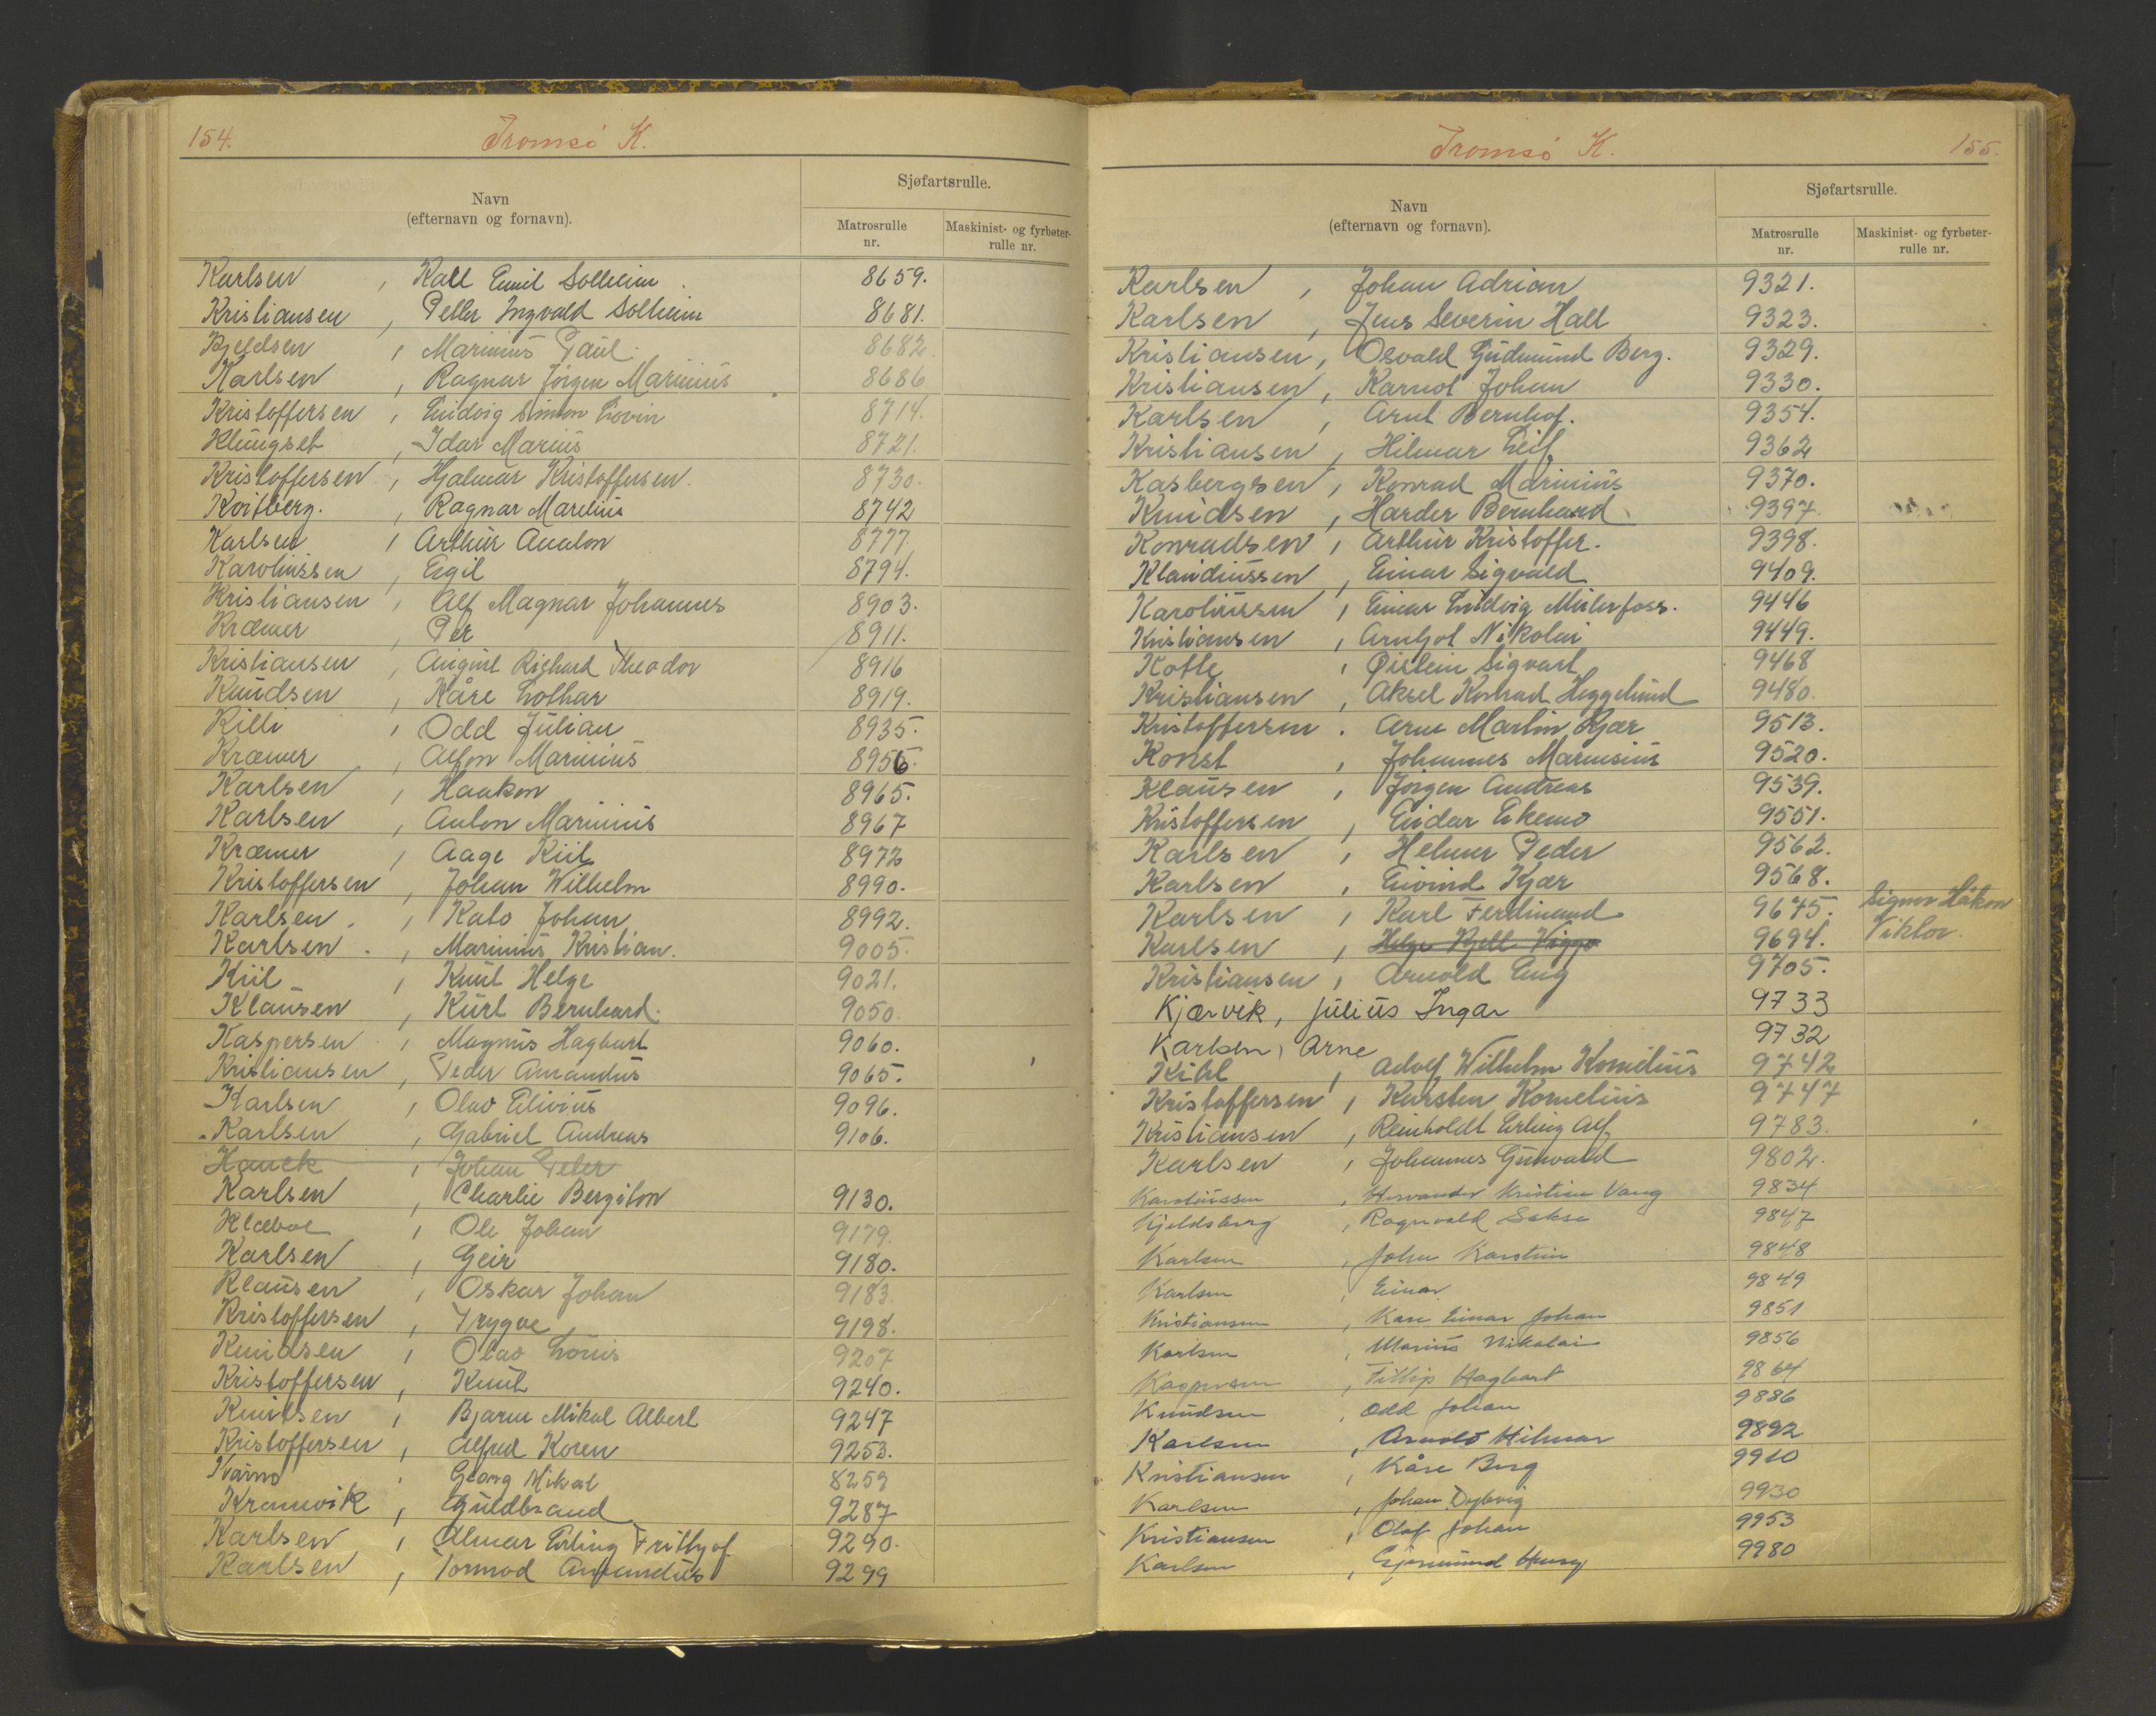 154.
Tromsø K.
Navn
(efternavn og fornavn).
Sjøfartsrulle.
Matrosrulle
nr.
Maskinist- og fyrbøter-
rulle nr.
Karlsen, Kall Emil Solheim. 8659.
Kristiansen, Petter Ingvald Solheim 8681.
Kjeldsen, Marinius Paul. 8682
Karlsen, Ragnar Jørgen Marinius 8686
Kristoffersen, Ludvig Simon Lovin 8714.
Klungset, Idar Marius 8721.
Kristoffersen, Hjalmar Kristoffersen. 8730.
Kvitberg., Ragnar Marelius 8742
Karlsen, Arthur Analon 8777
Karoliussen, Egil 8794.
Kristiansen, Alf Magnar Johannes 8903.
Kræmer, Per 8911.
Kristiansen, August Richard Theodor 8916
Knudsen, Kåre Lothar 8919.
Killi, Odd Julian 8935.
Kræmer, Alfon Marinius 8956.
Karlsen, Haakon 8965.
Karlsen, Anton Marinius 8967
Kræmer, Aage Kiil 8972
Kristoffersen, Johan Wilhelm 8990.
Karlsen., Kato Johan 8992.
Karlsen., Marinius Kristian. 9005.
Kiil, Knut Helge 9021.
Klausen, Kurt Bernhard. 9050.
Kaspersen, Magnus Hagbart 9060.
Kristiansen, Peder Amandus 9065.
Karlsen, Olav Elivius 9096.
Karlsen, Gabriel Andreas 9106.
Hauck, Johan Peter
Karlsen, Charlie Bergiton 9130.
Klæboe, Ole Johan 9179.
Karlsen, Geir 9180.
Klausen, Oskar Johan 9183.
Kristoffersen, Trygve 9198.
Knudsen, Olav Louis 9207
Kristoffersen, Knut 9240.
Knudsen, Bjarne Mikal Albert 9247
Kristoffersen, Alfred Koren 9253.
Kvarno Georg Mikal 8259
Kramvik, Guldbrand 9287
Karlsen, Almar Erling Frithjof 9290.
Karlsen, Tormod Amandus 9299
155.
Tromsø K.
Navn
(efternavn og fornavn).
Sjøfartsrulle.
Matrosrulle
nr.
Maskinist- og fyrbøter-
rulle nr.
Karlsen, Johan Adrian 9321.
Karlsen, Jens Severin Hall 9323.
Kristiansen, Osvald Gudmund Berg. 9329.
Kristiansen, Karnot Johan 9330.
Karlsen, Arnt Bernhof. 9354.
Kristiansen, Hilmar Leif 9362
Kasbergsen, Konrad Marinius 9370.
Knudsen, Harder Bernhard 9397
Konradsen, Arthur Kristoffer. 9398.
Klaudiussen, Einar Sigvald 9409.
Karoliussen, Einar Ludvig Meilerfoss. 9446
Kristiansen, Arnljot Nikolai 9449.
Kofte, Øistein Sigvart 9468
Kristiansen, Aksel Konrad Heggelund 9480.
Kristoffersen, Arne Martin Kjær 9513.
Konst, Johannes Marensius 9520.
Klausen, Jørgen Andreas 9539.
Kristoffersen, Eidar Ekemo 9551.
Karlsen, Helmer Peder 9562.
Karlsen, Eivind Kjær 9568.
Karlsen, Karl Ferdinand 9675. Signor Håkon
Karlsen, Helge Kjell Viggo 9694. Viktor.
Kristiansen, Arnold Eng 9705.
Kjærvik, Julius Ingar 9733
Karlsen, Arne 9732
Kihl, Adolf Wilhelm Kornelius 9742
Kristoffersen, Karsten Kornelius 9747
Kristiansen, Reinholdt Erling Alf 9783.
Karlsen, Johannes Gunvald 9802.
Karoliussen, Hervander Kristian Vang 9834
Kjeldsberg, Ragnvald Sakse 9847
Karlsen, John Karstein 9848
Karlsen, Einar 9849
Kristiansen, Kare Einar Johan 9851
Karlsen, Marius Nikolai 9856
Kaspersen, Fillip Hagbart 9864
Knudsen, Odd Johan 9886
Karlsen, Arnold Hilmar 9892
Kristiansen, Kåre Berg 9910
Karlsen, Johan Dybvig 9930
Kristiansen, Olaf Johan 9953
Karlsen, Gjermund Henry 9980